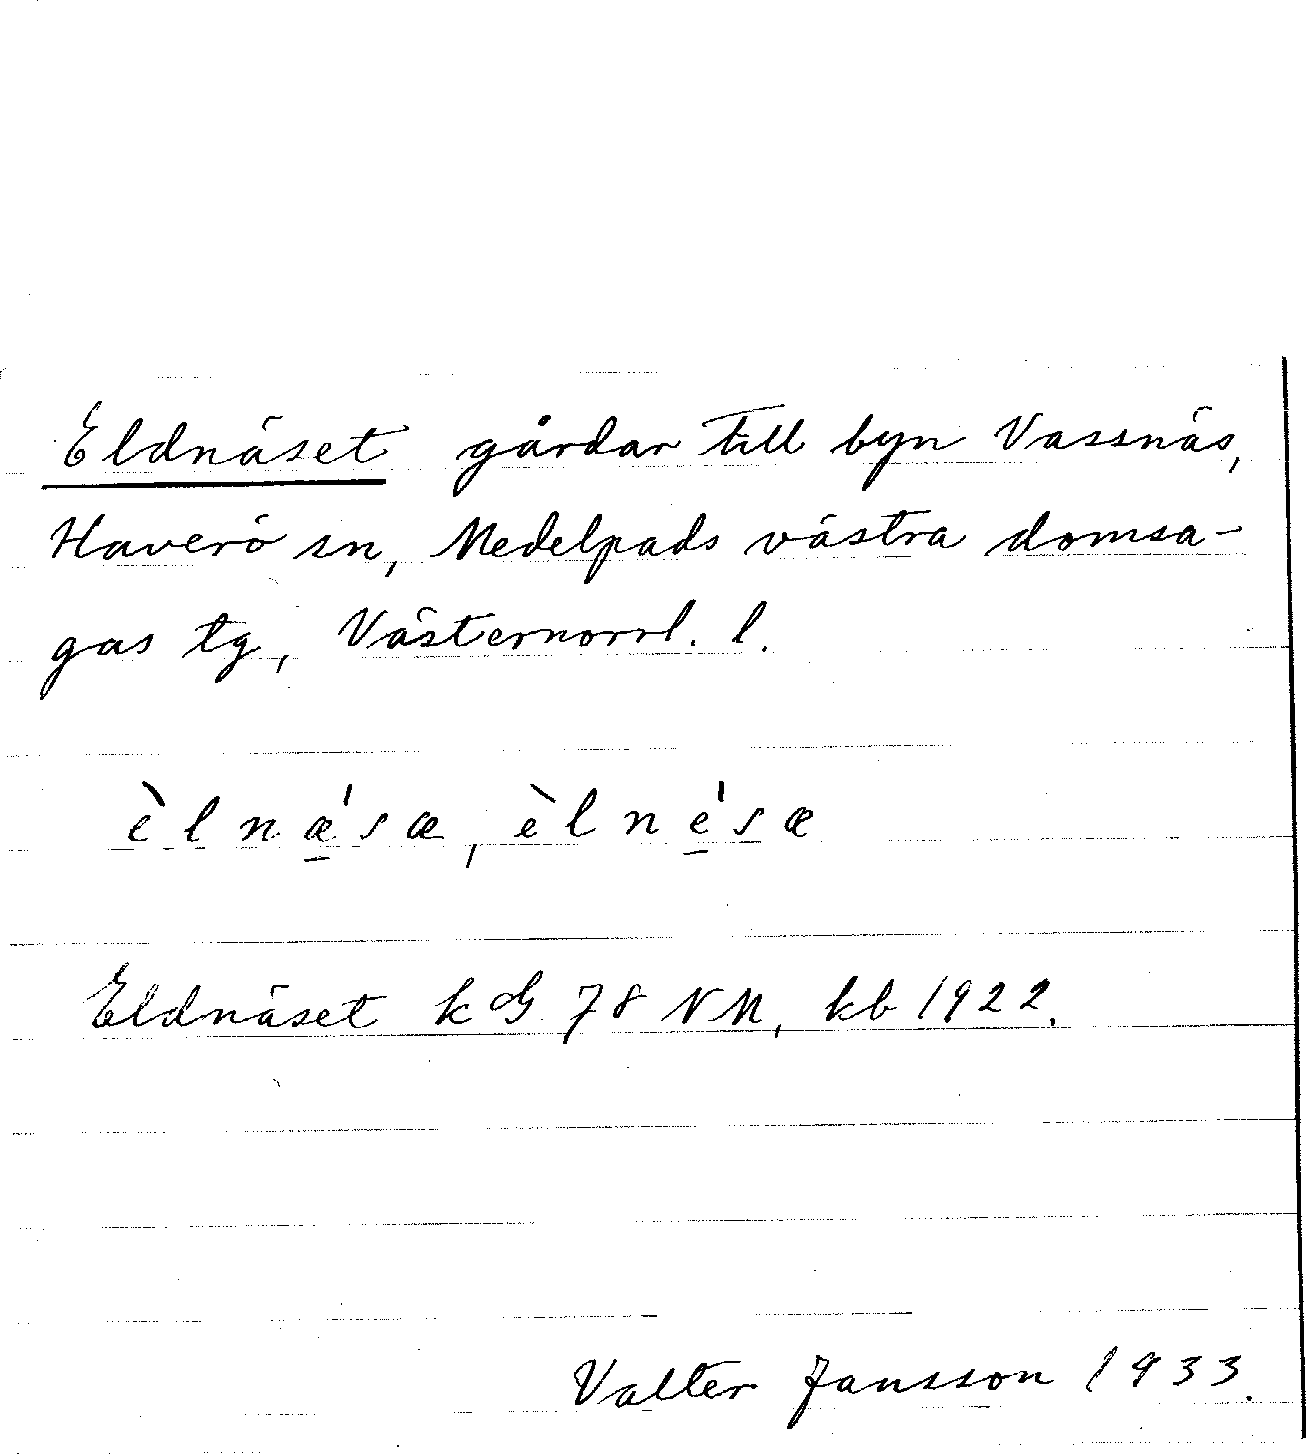 Eldnäset gårdar till byn Vassnäs,
Haverö sn, Medelpads västra domsa-
gas tg, Västernorrl. l.
èlnǽ̠sæ, èlné̠sæ
Eldnäset k dG 78 NM, kb 1922.
Valter Jansson 1933.